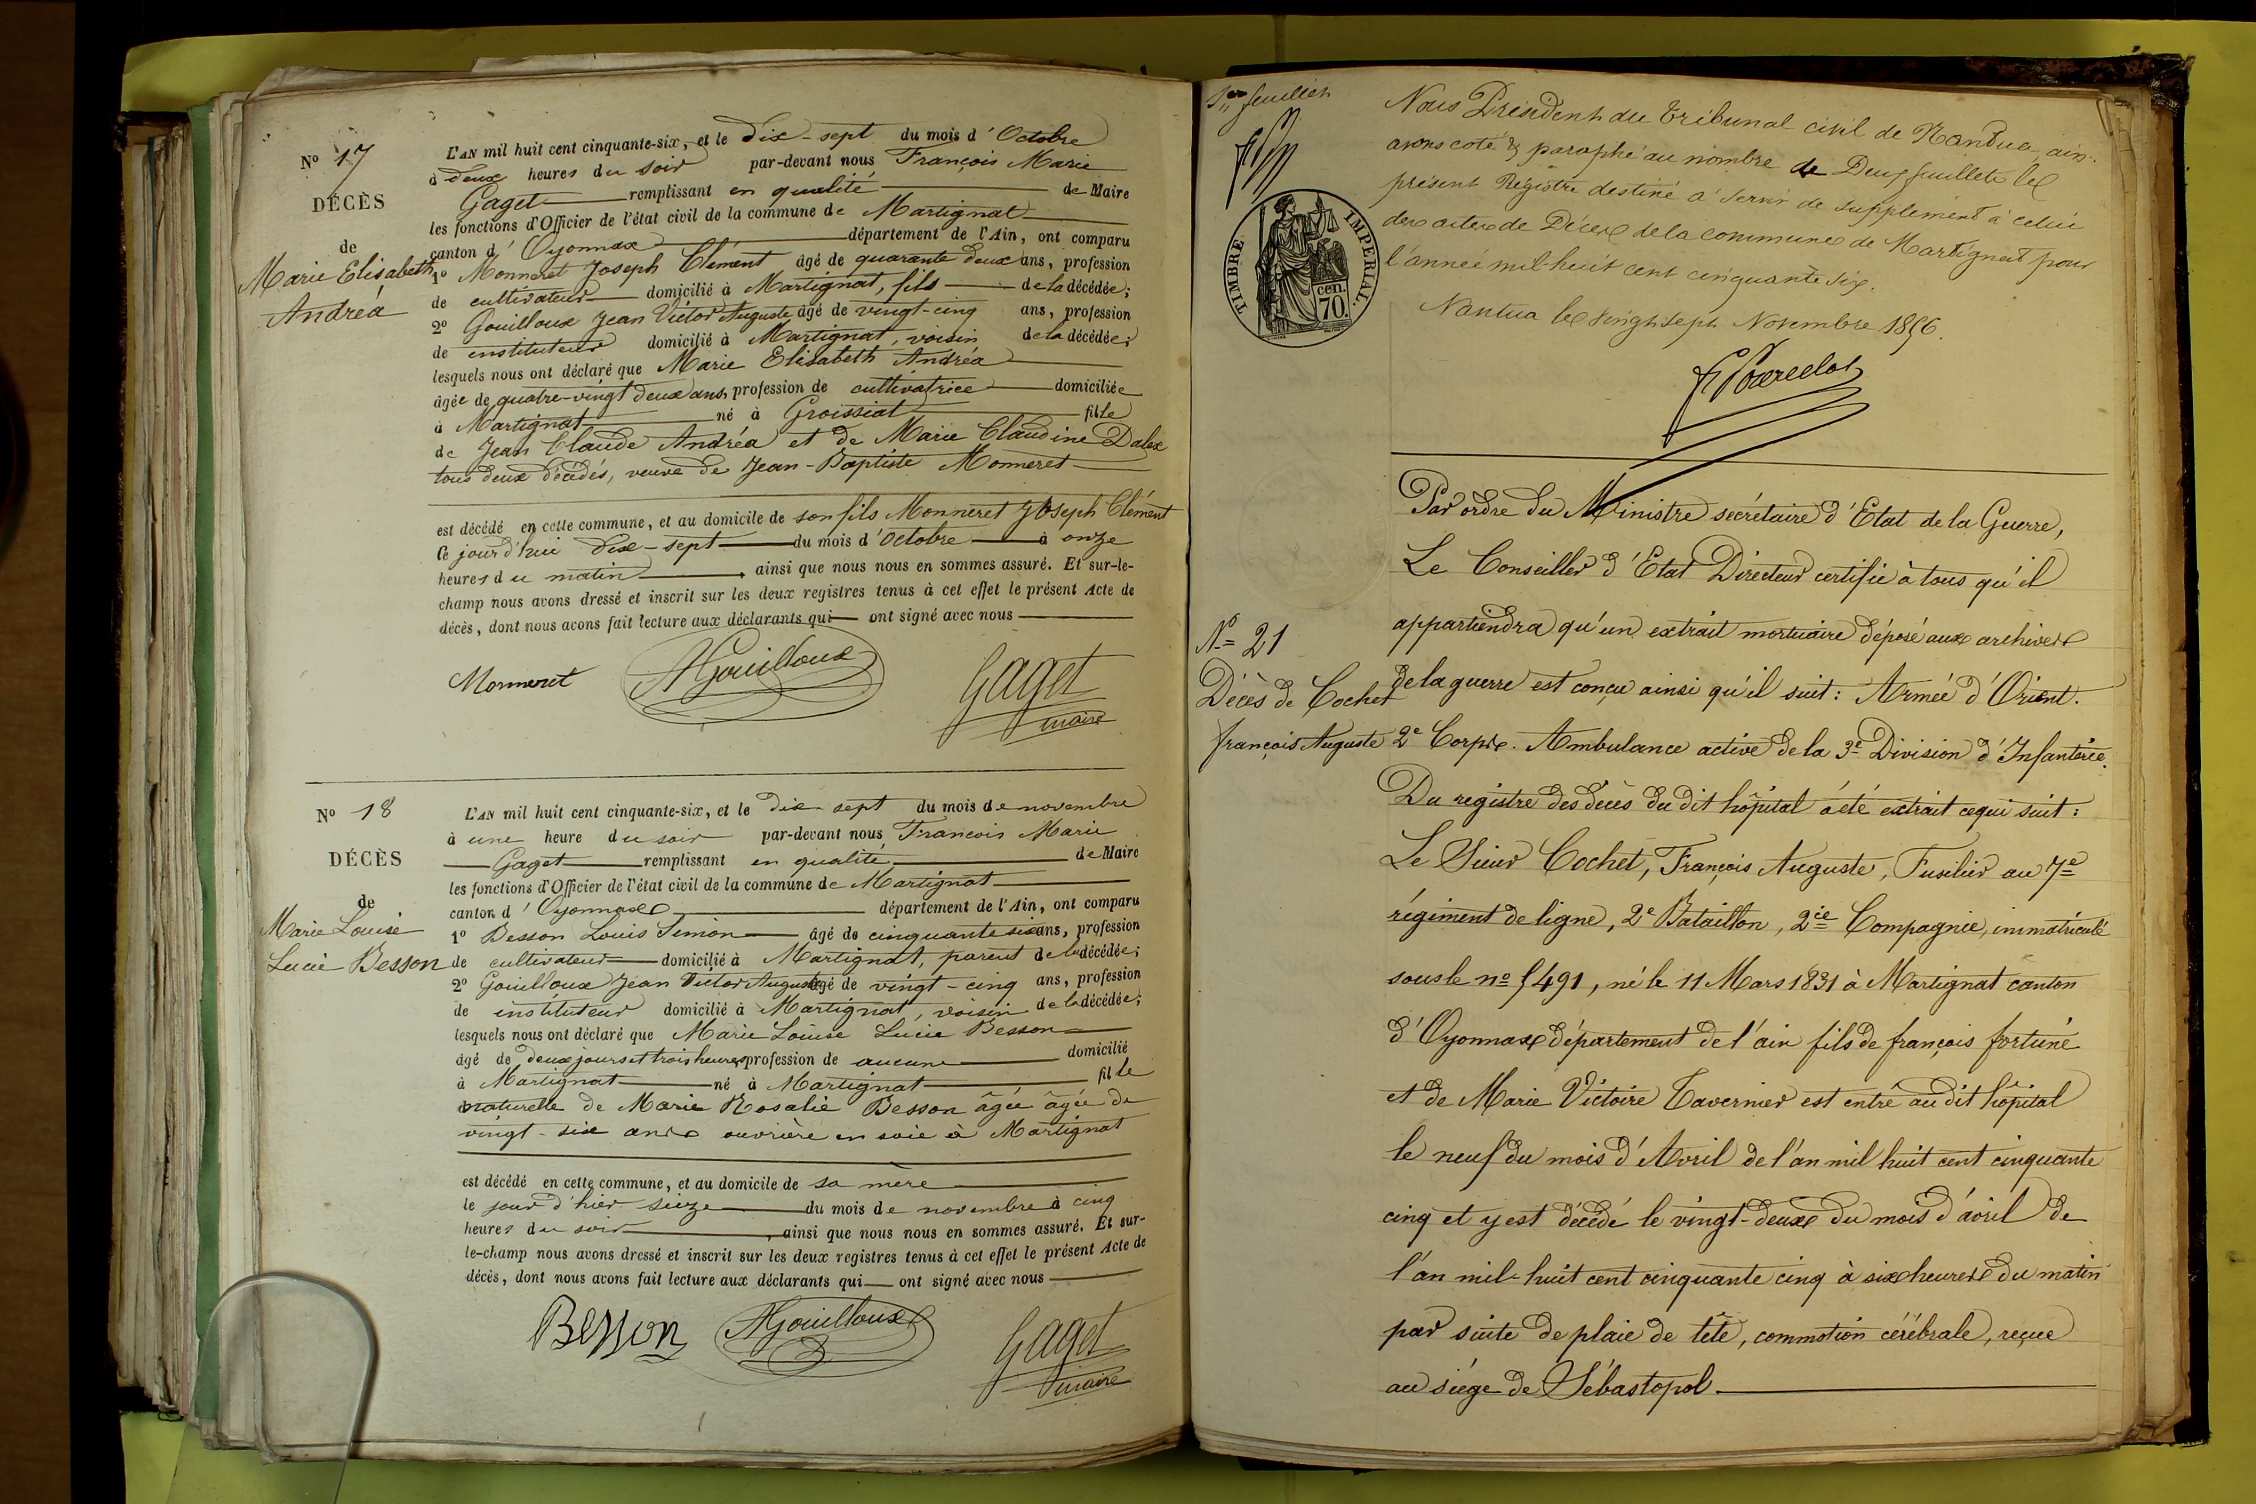 N° 17
DÉCÈS
de
Marie Elisabeth
Andréa
L'AN mil huit cent cinquante-six, et le dix-sept du mois d'Octobre
à deux heures du soir par-devant nous François Marie
Gaget remplissant en qualité de Maire
les fonctions d'Officier de l'état civil de la commune de Martignat
canton d'Oyonnax département de l'Ain, ont comparu
1° Monneret Joseph Clément âgé de quarante deux ans, profession
de cultivateur domicilié à Martignat, fils de la décédée;
2° Gouilloux Jean Victor Auguste âgé de vingt-cinq ans, profession
de instituteur domicilié à Martignat, voisin de la décédée;
lesquels nous ont déclaré que Marie Elisabeth Andréa
âgée de quatre-vingt deux ans, profession de cultivatrice domiciliée
à Martignat né à Groissiat fille
de Jean Claude Andréa et de Marie Claudine Dalex
tous deux décédés, veuve de Jean-Baptiste Monneret
est décédé en cette commune, et au domicile de son fils Monneret Joseph Clément
Ce jour d'hui dix-sept du mois d'octobre à onze
heures du matin, ainsi que nous nous en sommes assuré. Et sur-le-
champ nous avons dressé et inscrit sur les deux registres tenus à cet effet le présent Acte de
décès, dont nous avons fait lecture aux déclarants qui ont signé avec nous
Monneret AGouilloux Gaget
maire
N° 18
DÉCÈS
de
Marie Louise
Lucie Besson
L'AN mil huit cent cinquante-six, et le dix-sept du mois de novembre
à une heure du soir par-devant nous François Marie
Gaget remplissant en qualité de Maire
les fonctions d'Officier de l'état civil de la commune de Martignat
canton d'Oyonnax département de l'Ain, ont comparu
1° Besson Louis Simon âgé de cinquante six ans, profession
de cultivateur domicilié à Martignat, parent de la décédée;
2° Gouilloux Jean Victor Auguste âgé de vingt-cinq ans, profession
de instituteur domicilié à Martignat, voisin de la décédée;
lesquels nous ont déclaré que Marie Louise Lucie Besson
âgé de deux jours et trois heures profession de aucune domicilié
à Martignat né à Martignat fille
naturelle de Marie Rosalie Besson âgée âgée de
vingt-six ans ouvrière en soie à Martignat
est décédé en cette commune, et au domicile de sa mère
le jour d'hier seize du mois de novembre à cinq
heures du soir, ainsi que nous nous en sommes assuré. Et sur-
le-champ nous avons dressé et inscrit sur les deux registres tenus à cet effet le présent Acte de
décès, dont nous avons fait lecture aux déclarants qui ont signé avec nous
Besson AGouilloux Gaget
maire
1er feuillet
TIMBRE IMPERIAL.
cen.
70.
Nous Président du tribunal civil de Nantua, ain.
avons coté & paraphé au nombre de Deux feuillets le
présent Régistre destiné à servir de supplément à celui
des actes de Décès de la commune de Martignat pour
l'année mil-huit cent cinquante six.
Nantua le vingt sept Novembre 1856.
Par ordre du Ministre secrétaire d'Etat de la Guerre,
Le Conseiller d'Etat Directeur certifie à tous qu'il
appartiendra qu'un extrait mortuaire déposé aux archives
N° 21
Décès de Cochet
françois Auguste
de la guerre est conçu ainsi qu'il suit : Armée d'Orient.
2e Corps. Ambulance active de la 3e Division d'Infanterie.
Du registre des décès du dit hôpital a été extrait ce qui suit :
Le Sieur Cochet, François Auguste, Fusilier au 7e
régiment de ligne, 2e Bataillon, 2cie Compagnie, immatriculé
sous le n° 5491, né le 11 Mars 1831 à Martignat canton
d'Oyonnax département de l'ain fils de françois fortuné
et de Marie Victoire Tavernier est entré au dit hôpital
le neuf du mois d'Avril de l'an mil huit cent cinquante
cinq et y est décédé le vingt-deux du mois d'avril de
l'an mil-huit cent cinquante cinq à six heures du matin
par suite de plaie de tête, commotion cérébrale, reçue
au siége de Sébastopol